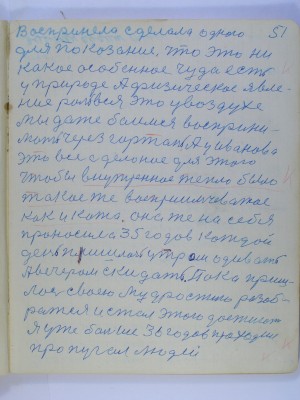 Восприняла сделала одного 51
для показание, что это ни
какое особенное чуда есть
у природе А физическое явле-
ние рамвся это увоздухе
мы даже боимся восприни-
мать через гортань А у иванова
это все сделоное для этого
чтобы внутренное тело было
такое же восприимчеваное
как и кожа. она же на себя
проносила 35 годов каждой
день пришлось утром одивать
А вечером скидать. Пока приш-
лось своею мудростью разоб-
раться и стал этого достигат
я уже больше 36 годов проходил
пропугал людей